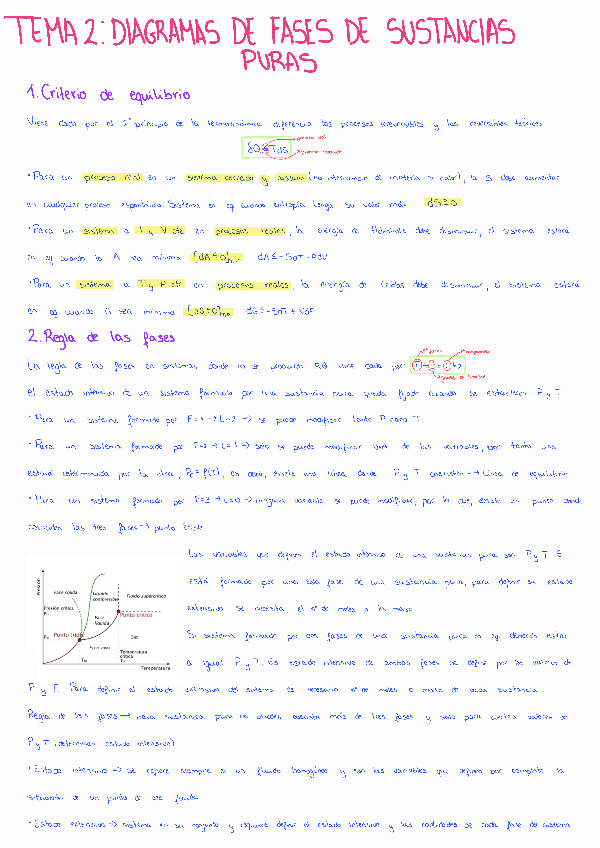 TEMA 2: DIAGRAMAS DE FASES DE SUSTANCIAS
PURAS
1. Criterio de equilibrio
Viene dado por el 2º principio de la termodinámica diferencia los procesos irreversibles y los reversibles teóricos
δQ ≤ TdS
• Para un proceso real en un sistema cerrado y aislado (no intercambio de materia o calor), la S debe aumentar
en cualquier proceso espontáneo. Sistema en eq cuando entropía tenga su valor máx dS ≥ 0
• Para un sistema a T y V cte en procesos reales, la energía de Helmholtz debe disminuir, el sistema estará
en eq cuando la A sea mínima [dA ≤ 0] dA ≤ -SdT - PdV
• Para un sistema a T y P cte en procesos reales, la energía de Gibbs debe disminuir, el sistema estará
en eq cuando G sea mínima [dG ≤ 0] dG ≤ -SdT + VdP
2. Regla de las fases
La regla de las fases en sistemas donde no se producen RQ viene dada por F + L = C + 2
el estado intensivo de un sistema formado por una sustancia pura queda fijado cuando se establecen P y T
• Para un sistema formado por F=1 → L=2 → se puede modificar tanto P como T
• Para un sistema formado por F=2 → L=1 → solo se puede modificar una de las variables, por tanto una
estará determinada por la otra, P=f(T), es decir, existe una línea donde P y T coexisten → Línea de equilibrio
• Para un sistema formado por F=3 → L=0 → ninguna variable se puede modificar, por lo que, existe un punto donde
coexisten las tres fases → punto triple
Las variables que definen el estado intensivo de una sustancia pura son P y T. Si
está formado por una sola fase de una sustancia pura, para definir su estado
extensivo se necesita el nº de moles o la masa
Si sistema formado por dos fases de una sustancia pura en eq. deberán estar
a igual P y T. Es estado intensivo de ambas fases se define por los valores de
P y T. Para definir el estado extensivo del sistema es necesario nº de moles o masa de cada sustancia
Presión
Fase sólida
Líquido compresible
Fluido supercrítico
Presión crítica
Punto crítico
Fase líquida
Punto triple
Gas
Temperatura crítica
Temperatura
Regla de las fases → para sustancia pura no pueden coexistir más de tres fases y solo para ciertos valores de
P y T (determinan estado intensivo)
• Estado intensivo → se refiere siempre a un fluido homogéneo y son las variables que definen por completo la
situación de un punto de ese fluido
• Estado extensivo → sistema en su conjunto y requiere definir el estado intensivo y las cantidades de cada fase del sistema